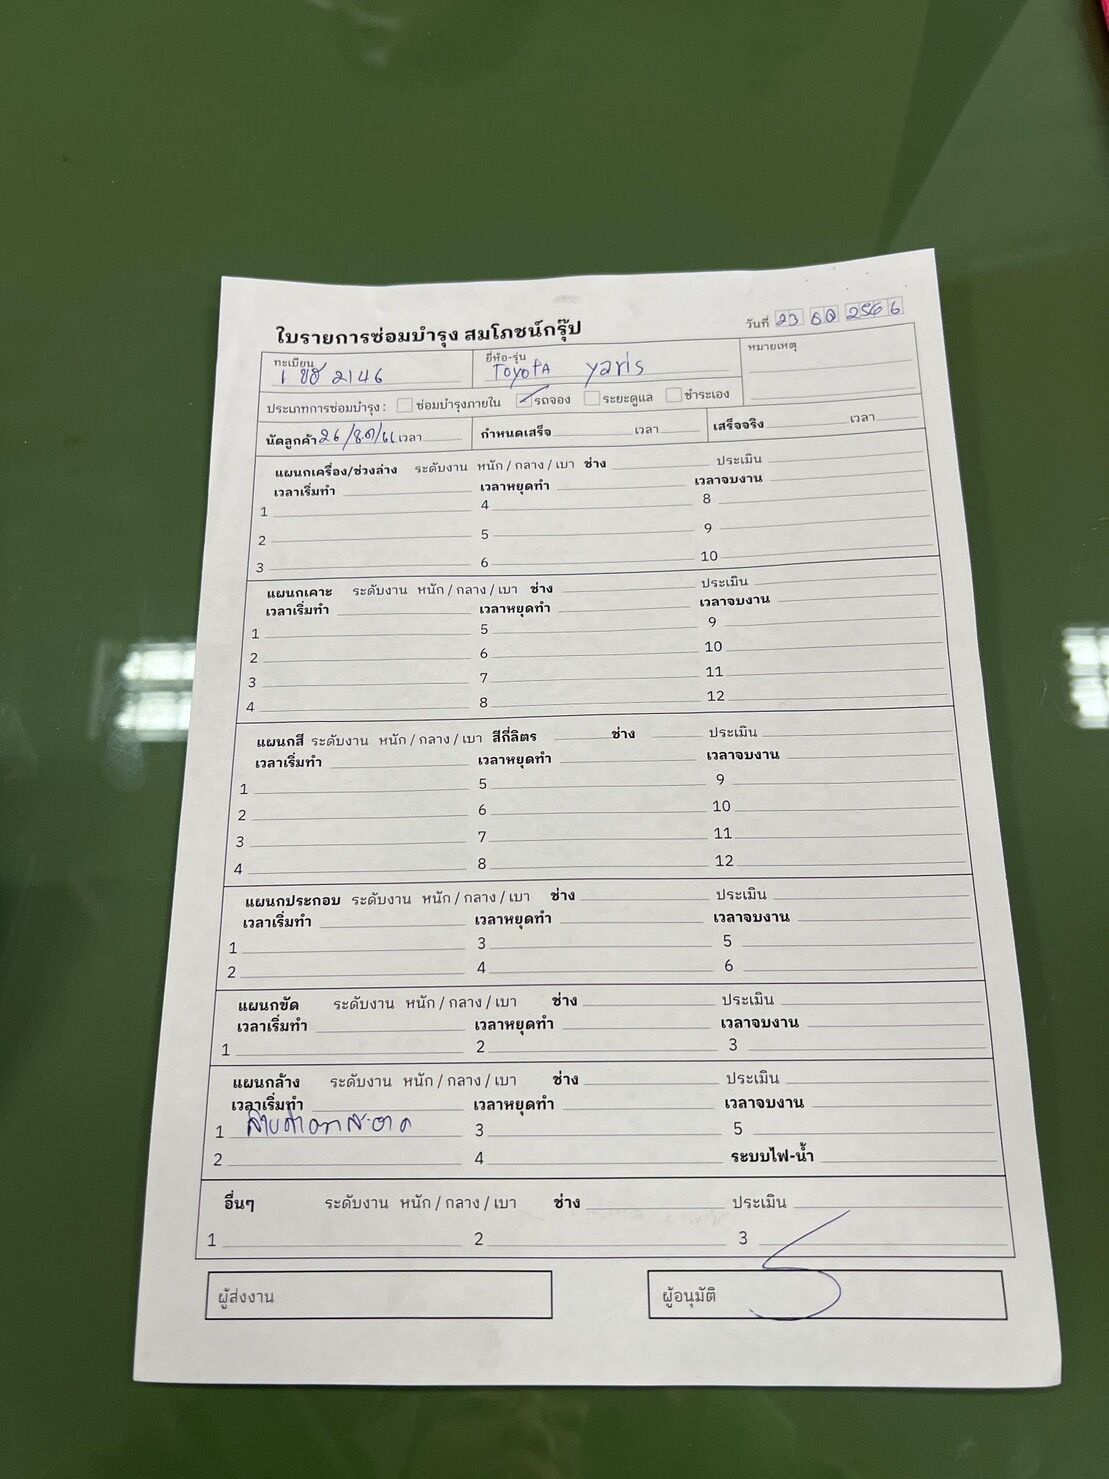 ใบรายการซ่อมบำรุง สมโภชน์กรุ๊ป
วันที่ 23 2566
ทะเบียน 2146 ยี่ห้อ-รุ่น TOYOTA yaris หมายเหตุ
ประเภทการซ่อมบำรุง : ซ่อมบำรุงภายใน รถจอง ระยะดูแล ชำระเอง
นัดลูกค้า เวลา กำหนดเสร็จ เวลา เสร็จจริง เวลา
แผนกเครื่อง/ช่วงล่าง ระดับงาน หนัก / กลาง / เบา ช่าง ประเมิน
เวลาเริ่มทำ เวลาหยุดทำ เวลาจบงาน
1 4 8
2 5 9
3 6 10
แผนกเคาะ ระดับงาน หนัก / กลาง / เบา ช่าง ประเมิน
เวลาเริ่มทำ เวลาหยุดทำ เวลาจบงาน
1 5 9
2 6 10
3 7 11
4 8 12
แผนกสี ระดับงาน หนัก / กลาง / เบา สีกี่ลิตร ช่าง ประเมิน
เวลาเริ่มทำ เวลาหยุดทำ เวลาจบงาน
1 5 9
2 6 10
3 7 11
4 8 12
แผนกประกอบ ระดับงาน หนัก / กลาง / เบา ช่าง ประเมิน
เวลาเริ่มทำ เวลาหยุดทำ เวลาจบงาน
1 3 5
2 4 6
แผนกขัด ระดับงาน หนัก / กลาง / เบา ช่าง ประเมิน
เวลาเริ่มทำ เวลาหยุดทำ เวลาจบงาน
1 2 3
แผนกล้าง ระดับงาน หนัก / กลาง / เบา ช่าง ประเมิน
เวลาเริ่มทำ เวลาหยุดทำ เวลาจบงาน
1 3 5
2 4 ระบบไฟ-น้ำ
อื่นๆ ระดับงาน หนัก / กลาง / เบา ช่าง ประเมิน
1 2 3
ผู้ส่งงาน ผู้อนุมัติ